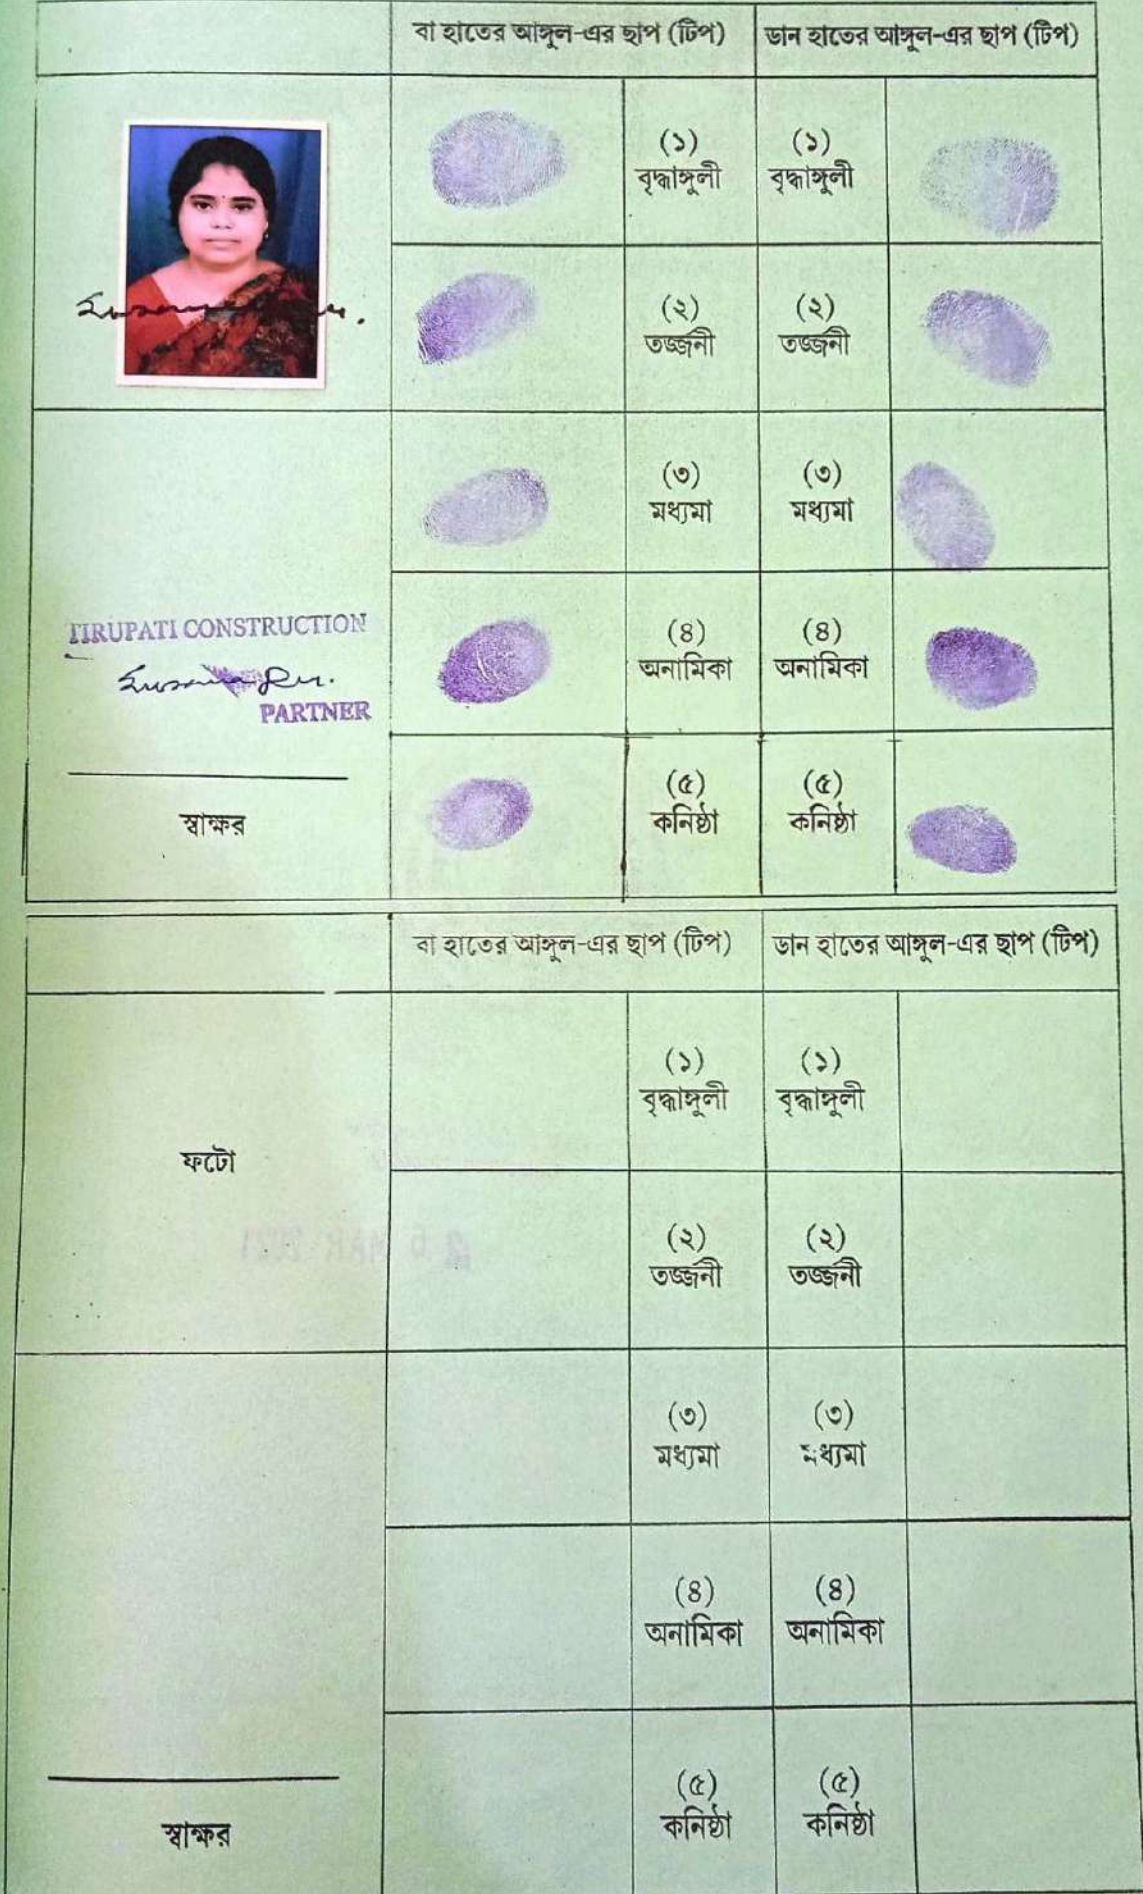 বা হাতের আঙ্গুল-এর ছাপ (টিপ)
ডান হাতের আঙ্গুল-এর ছাপ (টিপ)
(১)
বৃদ্ধাঙ্গুলী
(১)
বৃদ্ধাঙ্গুলী
(২)
তর্জ্জনী
(২)
তর্জ্জনী
(৩)
মধ্যমা
(৩)
মধ্যমা
TIRUPATI CONSTRUCTION
PARTNER
(৪)
অনামিকা
(৪)
অনামিকা
স্বাক্ষর
(৫)
কনিষ্ঠা
(৫)
কনিষ্ঠা
বা হাতের আঙ্গুল-এর ছাপ (টিপ)
ডান হাতের আঙ্গুল-এর ছাপ (টিপ)
ফটো
(১)
বৃদ্ধাঙ্গুলী
(১)
বৃদ্ধাঙ্গুলী
(২)
তর্জ্জনী
(২)
তর্জ্জনী
(৩)
মধ্যমা
(৩)
মধ্যমা
(৪)
অনামিকা
(৪)
অনামিকা
স্বাক্ষর
(৫)
কনিষ্ঠা
(৫)
কনিষ্ঠা